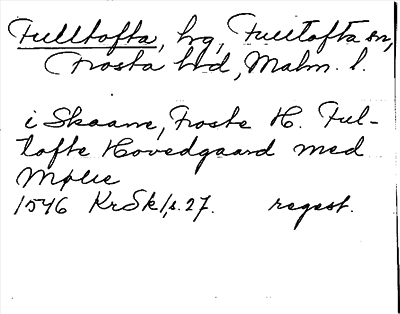 Fulltofta, hg, Fulltofta sn,
Frosta hd, Malm. l.
i Skaane, Froste H. Ful-
tofte Hovedgaard med
Mølle
1546 KrSk 1, s. 27. regest.